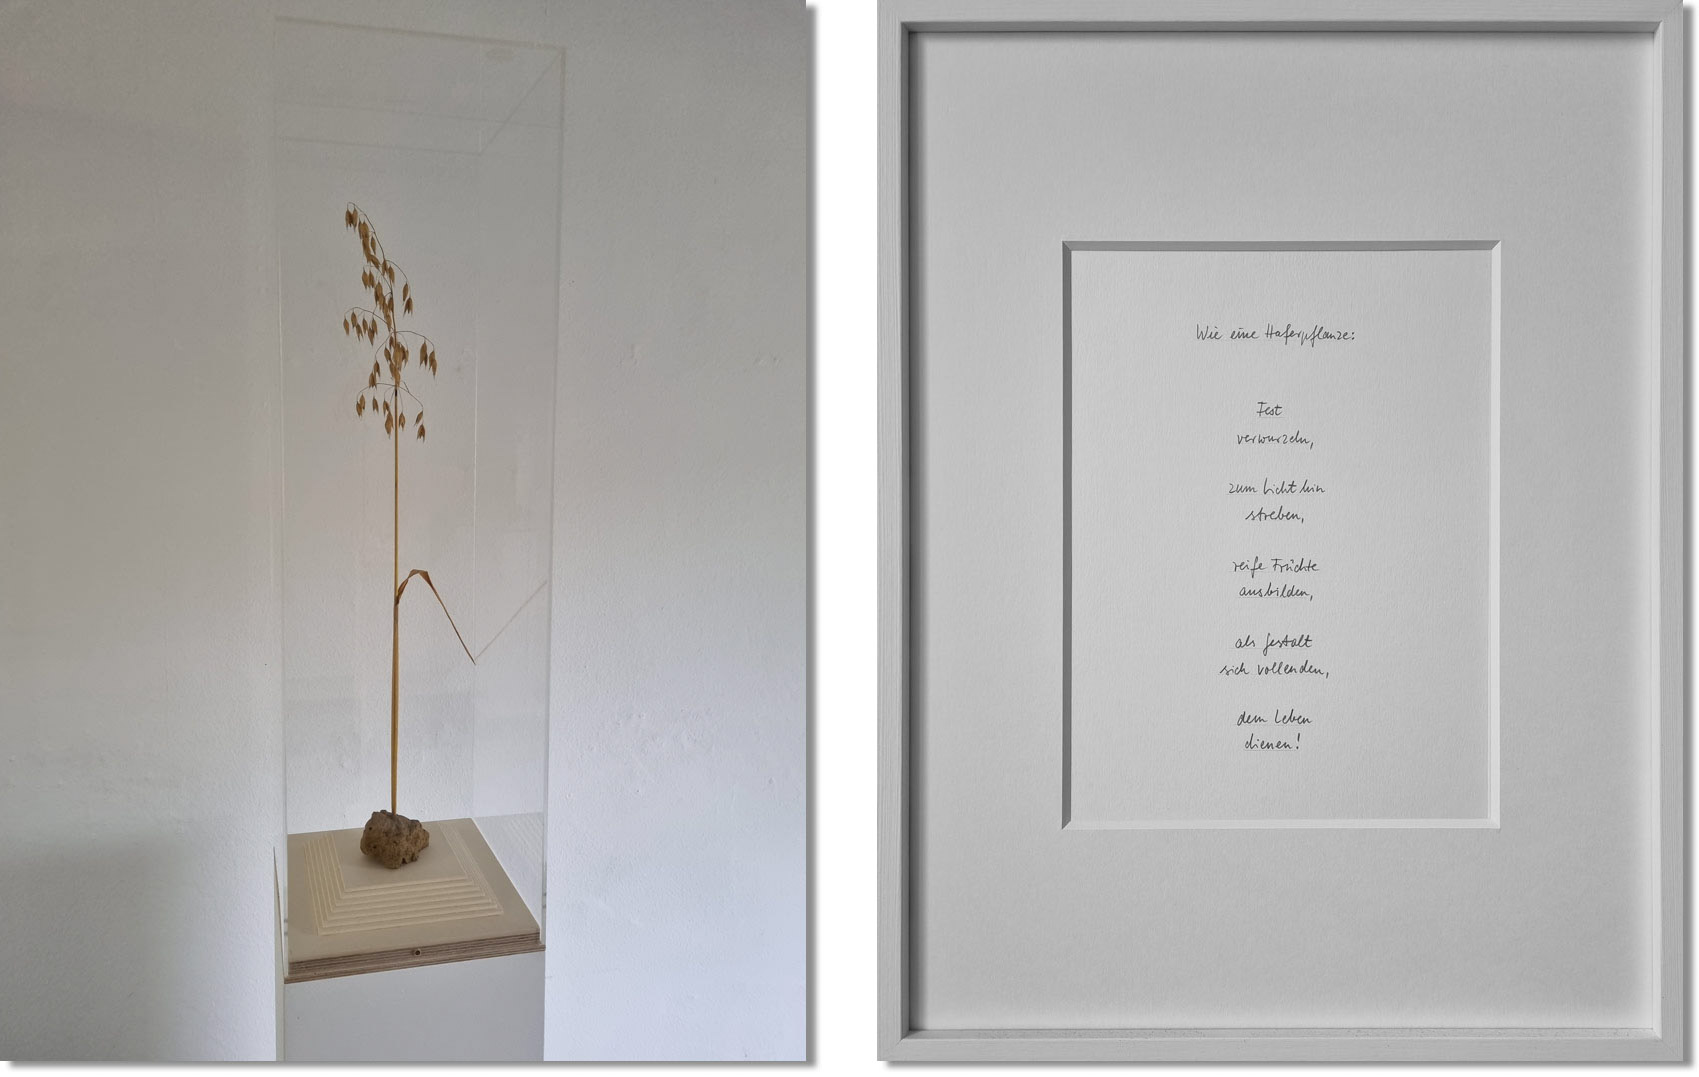 Wie eine Haferpflanze:
Fest
verwurzeln,
zum Licht hin
streben,
reife Früchte
ausbilden,
als Gestalt
sich vollenden,
dem Leben
dienen!